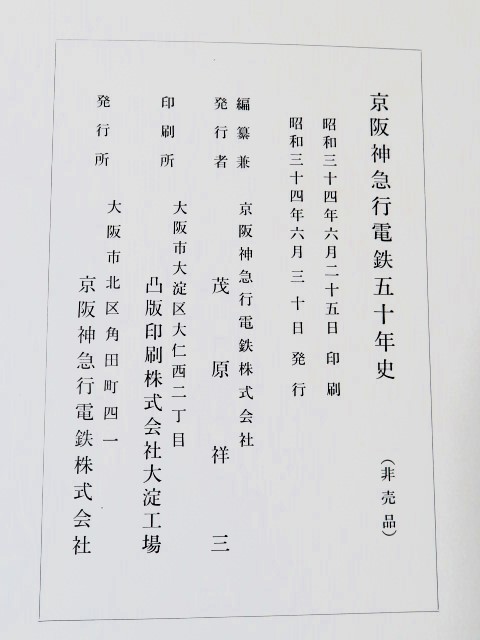 京阪神急行電鉄五十年史
（非売品）
昭和三十四年六月二十五日 印刷
昭和三十四年六月三十日 発行
編纂兼
発行者
京阪神急行電鉄株式会社
茂原祥三
印刷所
大阪市大淀区大仁西二丁目
凸版印刷株式会社大淀工場
発行所
大阪市北区角田町四一
京阪神急行電鉄株式会社